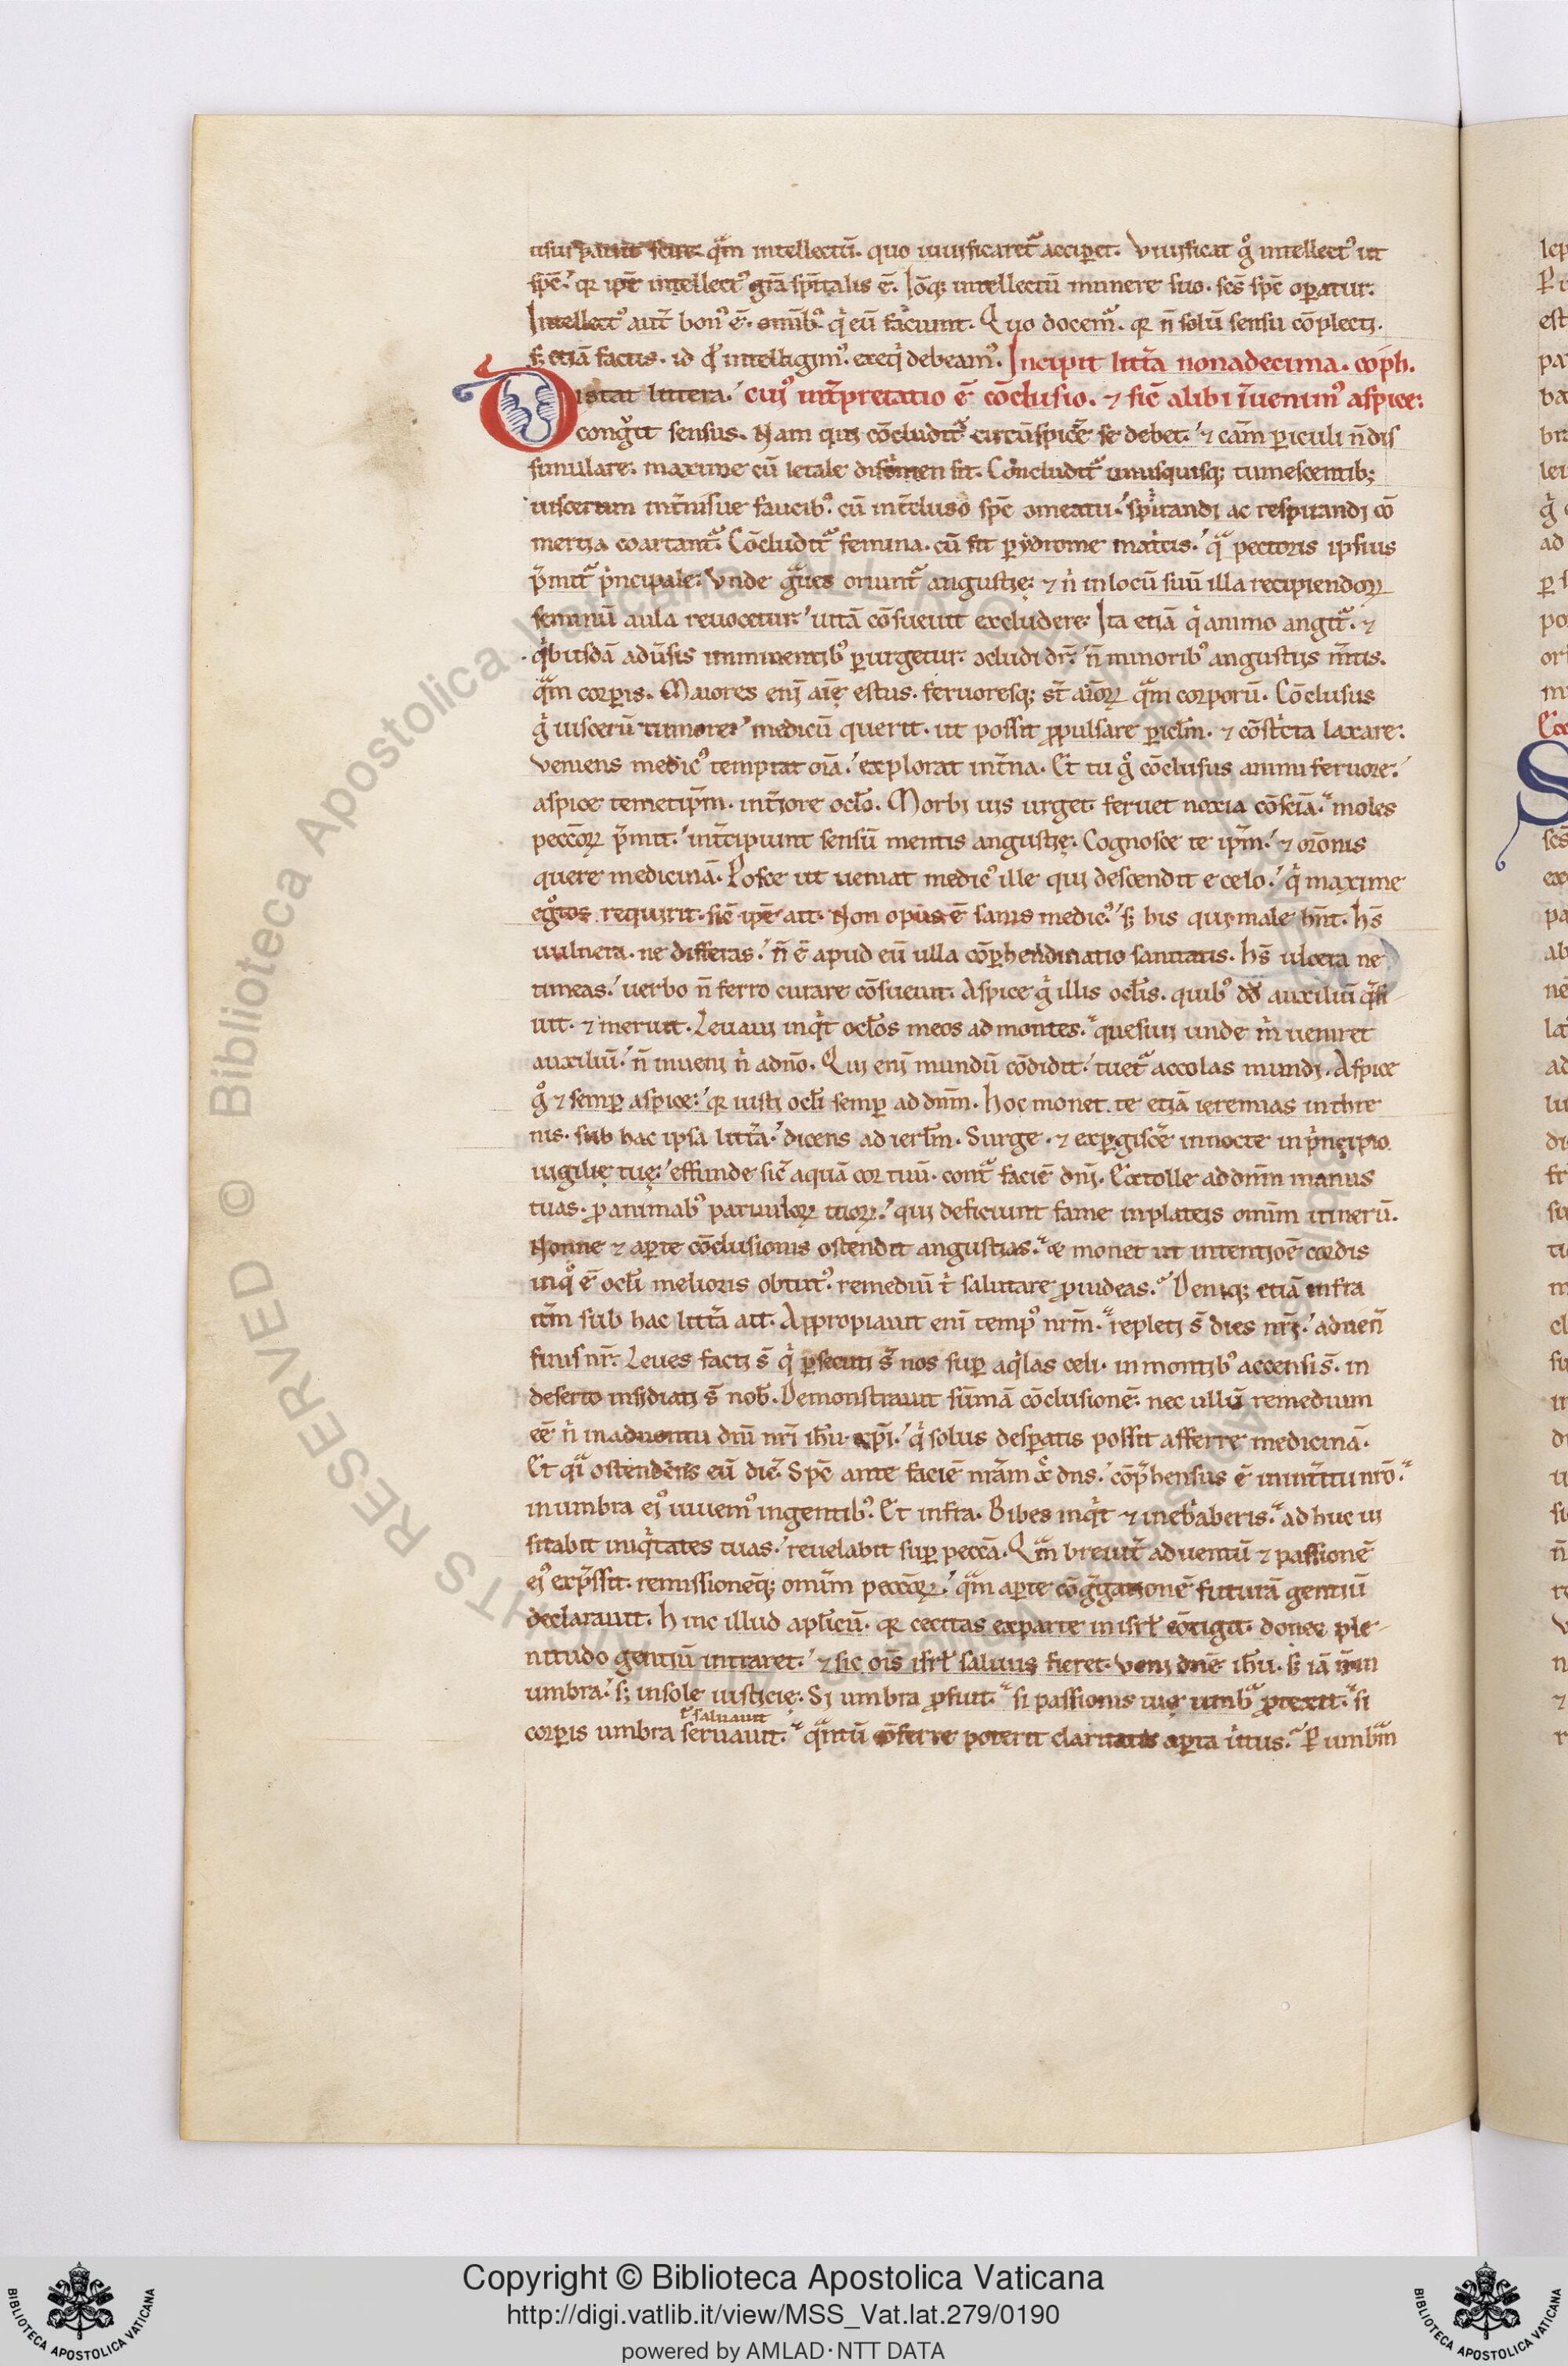 usurpauit scire. qᷓm intellectū. quo uiuificaretᷓ acciꝑet. Viuificat gͦ intellectꝰ ut
sp̄c. qꝛ ip̄e intellectꝰ gr̄a sp̄italis ē. Io̅qꝫ intellectū munere suo. sc̄s sp̄c oꝑatur.
Intellectꝰ aut̄ bonꝰ ē. om̄ibꝰ qⁱ eū faciunt. Quo docemᷓ. qꝛ n̄ solū sensu cōplecti.
sꝫ etiā factis. id qd̓ intelligimꝰ. exeqⁱ debeamꝰ. Incipit litt̄a nonadecima. coph.
Distat littera. cuiꝰ int̄pretatio ē cōclusio. ⁊ sic̄ alibi īuenimꝰ aspice:
congͥt sensus. Nam qui cōcluditᷓ circūspic̄e se debet. ⁊ cām ꝑiculi n̄ dis
simulare. maxime cū letale discͥmen sit. Concluditᷓ unusquisqꝫ tumescentibꝫ
uiscerum int̄nisue faucibꝰ. cū int̄cluso sp̄c omeatu. spirandi ac respirandi cō
mercia coartantᷓ. Cōcluditᷓ femina. cū fit ꝑydrome matͥcis. qᷓ pectoris ipsius
p̄mitᷓ pͥncipale. Vnde gᷓues oriuntᷓ angustię. ⁊ nͥ in locū suū illa recipiendoꝝ
seminū aula reuocetur. uitā cōsueuit excludere. Ita etiā qⁱ animo angitᷓ. ⁊
qⁱbusdā adūsis imminentibꝰ ꝑurgetur. ↄcludi dr̄. n̄ minoribꝰ angustijs m̄tis.
qᷓm corꝑis. Maiores eni aīę estus. feruoresqꝫ st̄ aīoꝝ qᷓm corporū. Cōclusus
gͥ uiscerū tumore. medicū querit. ut possit ꝓpulsare ꝑicl̄m. ⁊ cōstͥcta laxare.
Veniens medicꝰ temptat oīa. explorat int̄na. Et tu gͦ cōclusus animi feruore.
aspice temetip̄m. int̄iore ocl̄o. Morbi uis urget. feruet noxia cōsciā. moles
peccōꝝ p̄mit. int̄cipiunt sensū mentis angustię. Cognosce te ip̄m. ⁊ orōnis
quere medicinā. Posce ut ueniat medicꝰ ille qui descendit e celo. qⁱ maxime
egͦtos requirit. sic̄ ip̄e ait. Non opus ē sanis medicꝰ. sꝫ his qui male hn̄t. hs̄
uulnera. ne differas. n̄ ē apud eū ulla cōꝑhendinatio sanitatis. hs̄ ulcera ne
timeas. uerbo n̄ ferro curare cōsueuit. Aspice gͥ illis ocl̄is. quibꝰ dd̄ auxiliū qͣsi
uit. ⁊ meruit. Leuaui inqͥt ocl̄os meos ad montes. quesiui unde mͥ ueniret
auxiliū. n̄ inueni nͥ adn̄o. Qui eni mundū cōdidit. tuetᷓ accolas mundi. Aspice
gͦ ⁊ semꝑ aspice. qꝛ iusti ocl̄i semꝑ ad dn̄m. hoc monet te etiā ieremias in thre
nis. sub hac ipsa litt̄a. dicens ad ierl̄m. Surge. ⁊ exꝑgisc̄e in nocte in pͥncipio
uigilię tuę. effunde sic̄ aquā cor tuū. contᷓ faciē dni. Extolle ad dn̄m manus
tuas. ꝓ animabꝰ paruuloꝝ tuoꝝ. qui deficiunt fame in plateis omīm itinerū.
Nonne ⁊ aꝑte cōclusionis ostendit angustias. & monet ut intentioē cordis
inqͦ ē ocl̄i melioris obtutꝰ. remediū tͥ salutare ꝓuideas. Deniqꝫ etiā infra
it̄m sub hac litt̄a ait. Appropiauit eni tempꝰ nr̄m. repleti s̄ dies nr̄i. aduen̄
finis nr̄. Leues facti s̄ qⁱ ꝑsecuti s̄ nos suꝑ aqͥlas celi. in montibꝰ accensi s̄. in
deserto insidiati s̄ nob̄. Demonstrauit sūmā cōclusionē. nec ullū remedium
eē nͥ in aduentu dn̄i nr̄i ih̄u xp̄i. qⁱ solus desꝑatis possit afferre medicinā.
Et qͣi ostendens eū dic̄. Sp̄c ante faciē nr̄am xp̄c dn̄s. cōp̄hensus ē in int̄itu nr̄o.
in umbra eiꝰ uiuemꝰ in gentibꝰ. Et infra. Bibes inqͥt ⁊ inebͥaberis. ad huc ui
sitabit iniqͥtates tuas. reuelabit suꝑ peccā. Qᷓm breuit̄ aduentū ⁊ passionē
eiꝰ exp̄ssit. remissionēqꝫ omīm peccōꝝ. qᷓm aꝑte cōgͤgationē futurā gentiū
declarauit. Hinc illud apl̄icū. qꝛ cecitas ex parte in isrl̄ cōtigit. donec ple
nitudo gentiū intraret. ⁊ sic om̄s isrl̄ saluus fieret. Veni dn̄e ih̄u. sꝫ iā n̄ in
umbra. sꝫ in sole iusticię. Si umbra ꝓfuit. si passionis tuę umbᷓ ꝓtexit. si
ł saluauit
corꝑis umbra seruauit. qᷓntū ōferre poterit claritatis aꝑta uͥtus. P umbᷓm
Copyright © Biblioteca Apostolica Vaticana
http://digi.vatlib.it/view/MSS_Vat.lat.279/0190
powered by AMLAD·NTT DATA